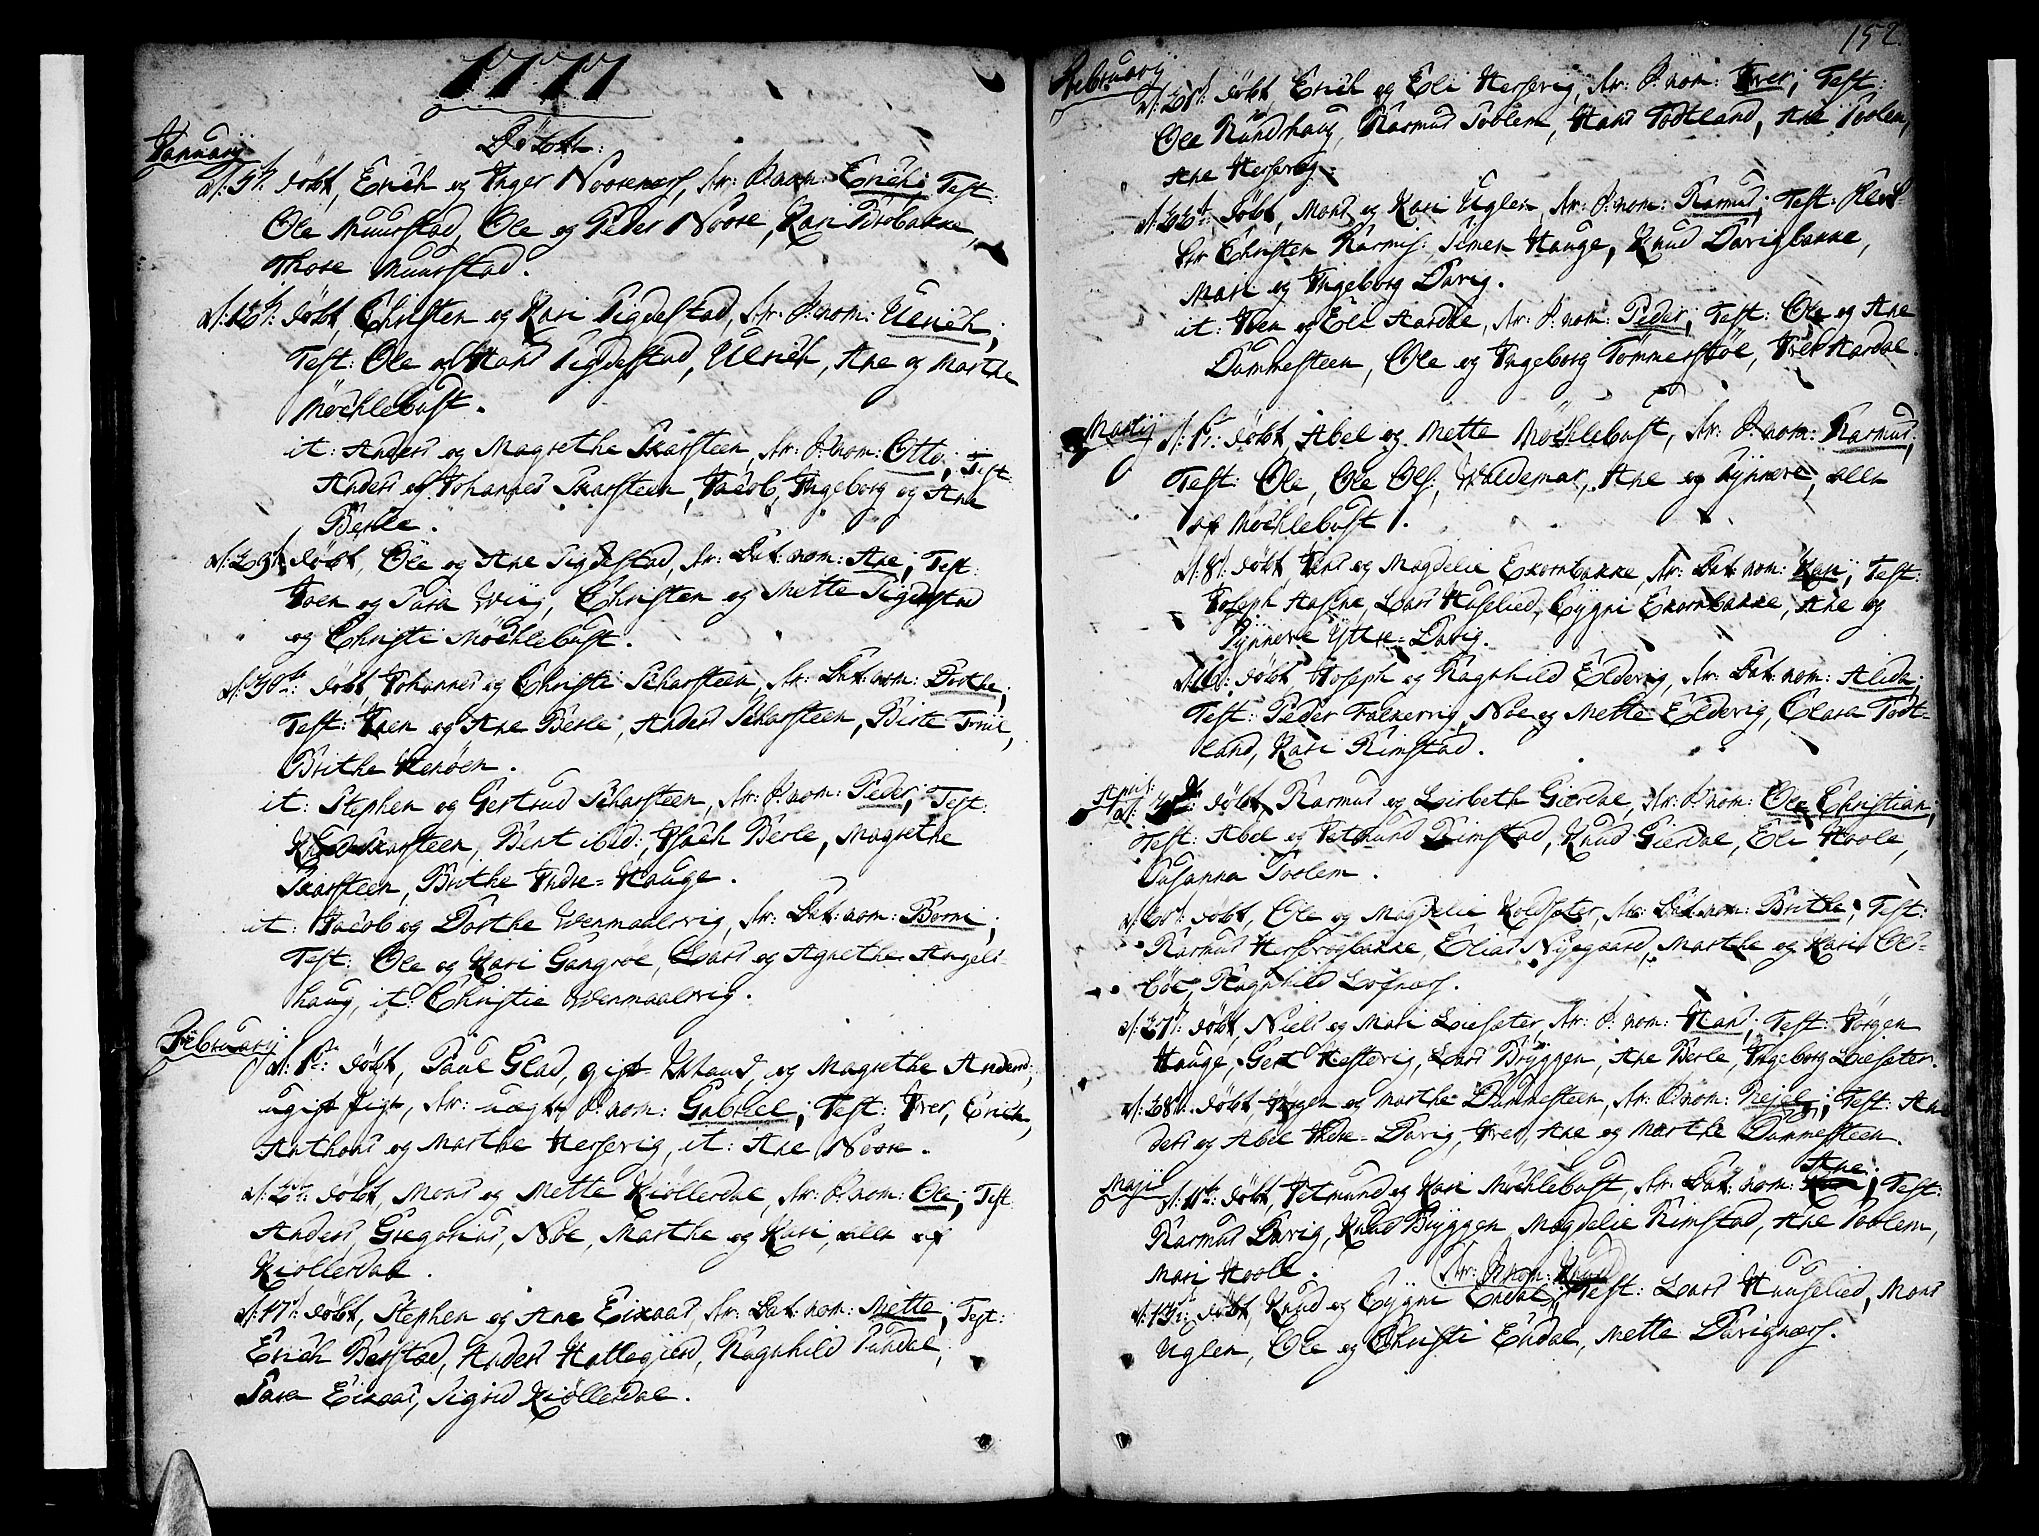 1777
Döbte:
Januarij
d: 5t: döbt, Erich og Inger Noosenæs, dr: P: nom: Erich; Test:
Ole Muurstad, Ole og Peder Noose, Kari Brobakke,
Thore Muurstad.
d: 12t: döbt, Christen og Kari Sigdestad, dr: P: nom: Ulrich;
Test: Ole og Hans Sigdestad, Ulrich, Ane og Marthe
Möchlebust.
it: Anders og Magrethe Skarsteen, dr: P: nom: Otto; Test:
Anders og Johannes Skarsteen, Jacob, Ingeborg og Ane
Berle.
d: 29t: döbt, Ole og Ane Sigdestad, dr: Dat: nom: Ane; Test:
Joen og Sara Wiig, Christen og Mette Sigdestad
og Christi Möchlebust.
d: 30te: döbt, Johannes og Christi Scharsteen, dr: Dat: nom: Dorthe;
Test: Joen og Ane Berle, Anders Scharsteen, Birte Friis,
Brithe Henöen.
it: Stephen og Gertrud Scharsteen, dr: P: nom: Peder; Test:
Knud Skarsteen, Bent ibid:, Isach Berle, Magrethe
Skarsteen, Brithe Indre-Hauge.
it: Jacob og Dorthe Wenmaalwig, dr: Dat: nom: Borni;
Test: Ole og Kari Gangsöe, Lars og Agnethe Angels-
haug, it: Christie Wenmaalwig.
Februarij
d: 1te: döbt, Paul Glad, gift Mand, og Magrethe Andersd:
ugift Pige, dr: uægte P: nom: Gabriel; Test: Iver, Erich,
Anthons og Marthe Hersevig, it: Ane Noose.
d: 2den: döbt, Mons og Mette Kiöllerdal, dr: P: nom: Ole; Test:
Anders, Gregorius, Noe, Marthe og Kari, alle af
Kiöllerdal.
d: 17t: döbt, Stephen og Ane Eixaas, dr: Dat: nom: Mette; Test:
Erich Berstad, Anders Hattegierd, Ragnhild Sundal,
Sara Eixaas, Sigrid Kiöllerdal.
152
Februarij
d: 21t: döbt, Erich og Eli Hersevig, dr: P: nom: Iver; Test:
Ole Rundshaug, Rasmus Soolem, Hans Todtland, Ane Soolem,
Ane Hersevig.
d: 22t: döbt, Mons og Kari Uglen, dr: P: nom: Rasmus; Test:
Christen Rasmus: Simen Hauge, Knud Davigbakke,
Mari og Ingeborg Davig.
it: Joen og Eli Aardal, dr: P: nom: Peder; Test: Ole og Ane
Dammesteen, Ole og Ingeborg Tömmerstöe, Iver Aardal.
Martij
d: 1t: döbt Abel og Mette Möchlebust, dr: P: nom: Rasmus;
Test: Ole, Ole Ols:, Woldemar, Ane og Synneve, alle
af Möchlebust.
d: 8t: döbt, Jens og Magdelie Ekornbakke, dr: Dat: nom: Kari; Test:
Joseph Aasene, Lars Huselied, Cygni Ekornbakke, Ane og
Synneve Yttre-Davig.
döbt Joseph og Ragnhild Eldevig, dr: Dat: nom: Alida;
Test: Peder Falkevig, Noe og Mette Eldevig, Clara Todt-
land, Kari Rimstad.
April:
döbt, Rasmus og Lisbeth Gierdal, dr: P: nom: Ole Christian;
Test: Abel og Jetmund Rimstad, Knud Gierdal, Eli Hoole,
Susanna Soolem.
döbt, Ole og Magdelie Koldsæter, dr: Dat: nom: Brithe; Test:
Rasmus Hersevigbakke, Elias Nyegaard, Marthe og Kari Ols-
böe, Ragnhild Lofnæs.
d: 27t: döbt, Niels og Mari Liesæter, dr: P: nom: Hans; Test: Jörgen
Hauge, Gert Hestevig, Lars Bryggen, Ane Berle, Ingeborg Liesæter.
d: 28t: döbt, Jörgen og Marthe Dammesteen, dr: P: nom: Nejel; Test: An-
ders og Abel Indre-Davig, Iver, Ane og Marthe Dammesteen.
Maji
d: 11te: döbt, Jetmund og Kari Möchlebust, dr: Dat: nom: Ane; Test:
Rasmus Davig, Knud Bryggen, Magdelie Rimstad, Ane Soolem,
Mari Hoole.
dr: P: nom: Knud
d: 13t: döbt, Knud og Cygni Endal, Test: Lars Hauselied, Mons
Uglen, Ole og Christi Endal, Mette Davignæs.